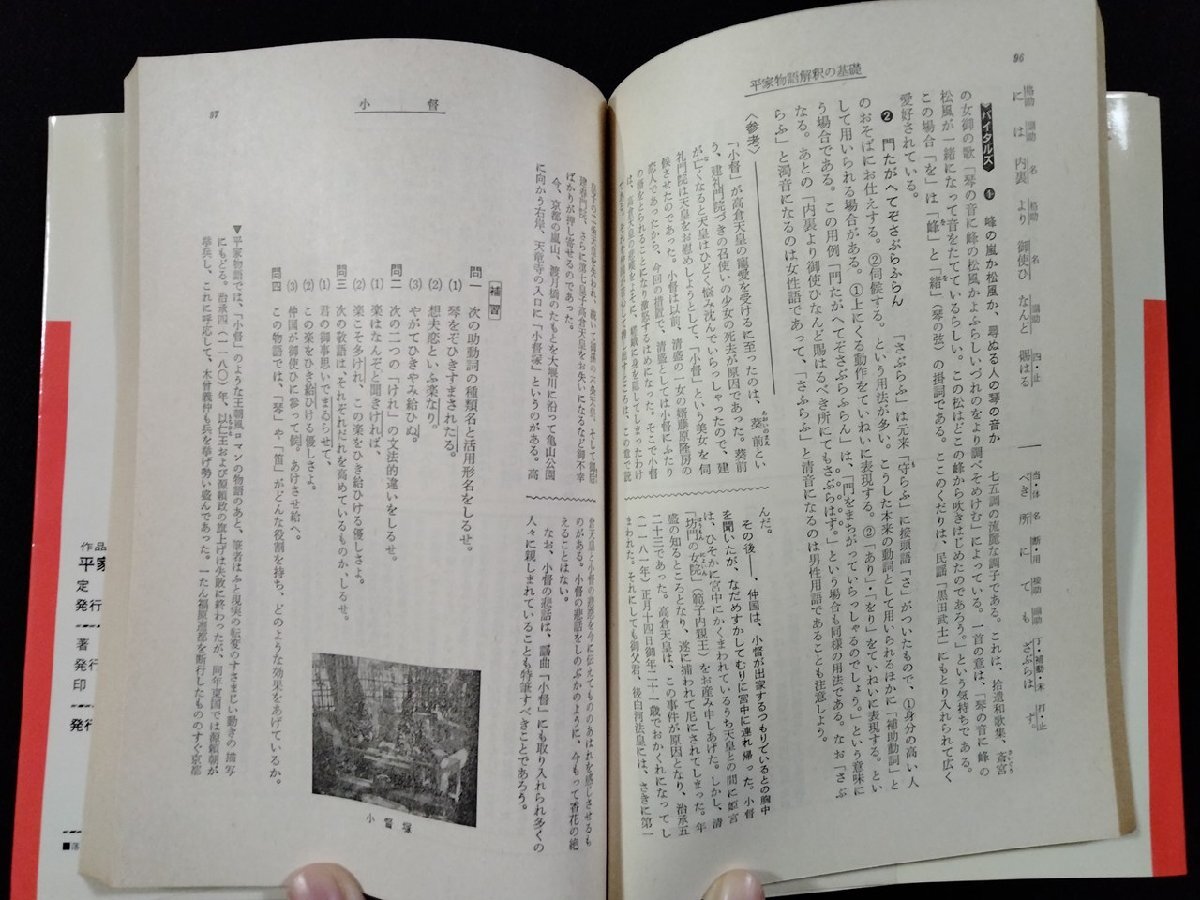 96
平家物語解釈の基礎
に は 内裏 より 御使ひ なんど 賜はる べき 所 に て も さぶらは ず。
バイタルズ ❶ 峰の嵐か松風か、尋ぬる人の琴の音か 七五調の流麗な調子である。これは、拾遺和歌集、斎宮
の女御の歌「琴の音に峰の松風かよふらしいづれのをより調べそめけむ」によっている。一首の意は、「琴の音に峰の
松風が一緒になって音をたてているらしい。この松はどこの峰から吹きはじめたのであろう。」という気持ちである。
この場合「を」は「峰」と「緒」(琴の弦)の掛詞である。ここのくだりは、民謡「黒田武士」にもとり入れられて広く
愛好されている。
❷ 門たがへてぞさぶらふらん 「さぶらふ」は元来「守らふ」に接頭語「さ」がついたもので、①身分の高い人
のおそばにお仕えする。②伺候する。という用法が多い。こうした本来の動詞として用いられるほかに「補助動詞」と
して用いられる場合がある。①上にくる動作をていねいに表現する。②「あり」「をり」をていねいに表現する。とい
う場合である。この用例「門たがへてぞさぶらふらん」は、「門をまちがっていらっしゃるのでしょう。」という意味に
なる。あとの「内裏より御使ひなんど賜はるべき所にてもさぶらはず。」という場合も同様の用法である。なお「さぶ
らふ」と濁音になるのは女性語であって、「さふらふ」と清音になるのは男性用語であることも注意しよう。
〈参考〉
「小督」が高倉天皇の寵愛を受けるに至ったのは、葵前とい
う、建礼門院づきの召使いの少女の死去が原因であった。葵前
が亡くなると天皇はひどく悩み沈んでいらっしゃったので、建
礼門院は天皇をお慰めしようとして、「小督」という美女を伺
候させたのであった。小督は以前、清盛の一女の婿藤原隆房の
恋人であったから、今回の措置で、清盛としては小督にふたり
の婿をとられることになり激怒するはめになった。そこで小督
んだ。
その後――、仲国は、小督が出家するつもりでいるとの胸中
を聞いたが、なだめすかしてむりに宮中に連れ帰った。小督
は、ひそかに宮中にかくまわれているうち天皇との間に姫宮
「坊門の女院」(範子内親王)をお産み申しあげた。しかし、清
盛の知るところとなり、遂に捕われて尼にされてしまった。年
二十三であった。高倉天皇は、この事件が原因となり、治承五
(一一八一)年正月十四日御年二十一歳でおかくれになってし
まわれた。それにしても御父君、後白河法皇には、さきに第一
97
小督
建春門院、さらに第七皇子高倉天皇をお失いになるなど御不幸
ばかりが押し寄せるのであった。
今、京都の嵐山、渡月橋のたもとを大堰川に沿って亀山公園
に向かう右岸、天竜寺の入口に「小督塚」というのがある。高
倉天皇と小督の悲恋を今に伝えてもののあはれを感じさせるも
のがある。小督の悲話をしのぶかのように、今もって香花の絶
えることはない。
なお、小督の悲話は、謡曲「小督」にも取り入れられ多くの
人々に親しまれていることも特筆すべきことであろう。
小督塚
補習
問一 次の助動詞の種類名と活用形名をしるせ。
(1) 琴をぞひきすまされたる。
(2) 想夫恋といふ楽なり。
(3) やがてひきやみ給ひぬ。
問二 次の二つの「けれ」の文法的違いをしるせ。
(1) 楽はなんぞと聞きければ、
(2) 楽こそ多けれ、この楽をひき給ひける優しさよ。
問三 次の敬語は、それぞれだれを高めているものか、しるせ。
(1) 君の御事思いでまゐらせて、
(2) この楽をひき給ひける優しさよ。
(3) 仲国が御使ひに参って候。あけさせ給へ。
問四 この物語では、「琴」や「笛」がどんな役割を持ち、どのような効果をあげているか。
▼平家物語では、「小督」のような王朝風ロマンの物語のあと、筆者はふと現実の転変のすさまじい動きの描写
にもどる。治承四(一一八〇)年、以仁王および源頼政の旗上げは失敗に終わったが、同年東国では源頼朝が
挙兵し、これに呼応して、木曽義仲も兵を挙げ勢い盛んであった。一たん福原遷都を断行したもののすぐ京都
作品
平家
定
発行
著
発行
印
発行